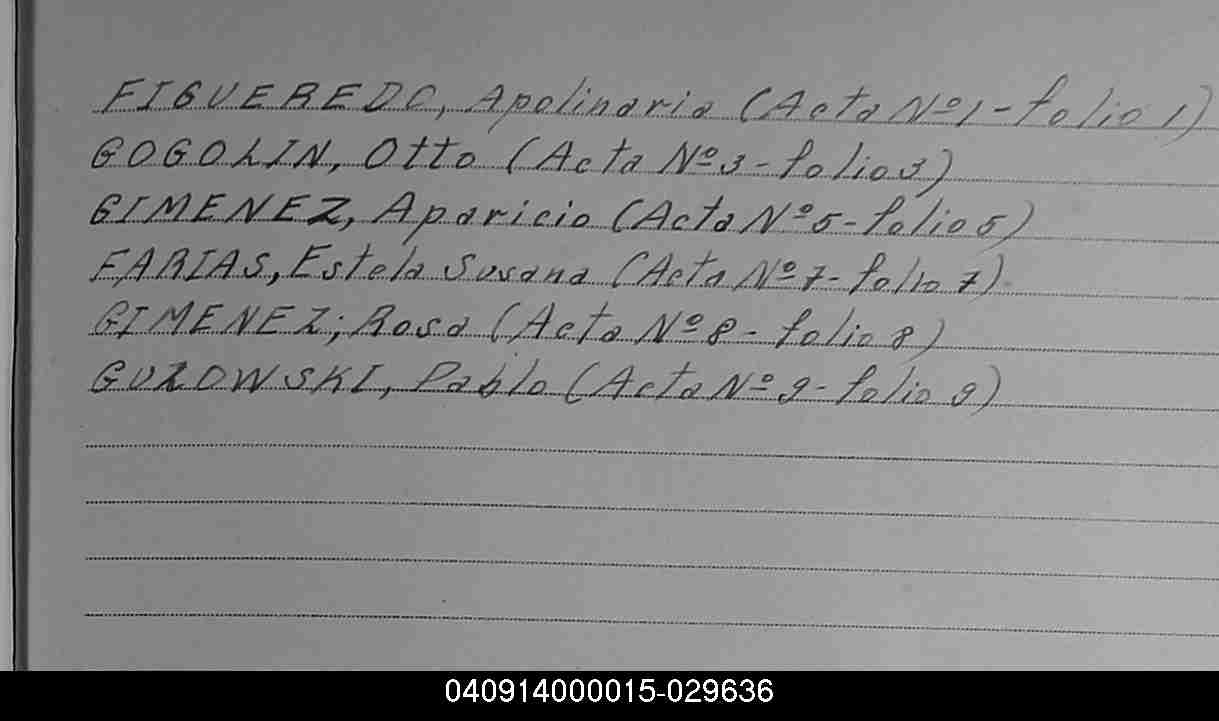 FIGUEREDO, Apolinario (Acta Nº1-folio 1)
GOGOLIN, Otto (Acta Nº3-folio3)
GIMENEZ, Aparicio (Acta Nº5-folio5)
FARIAS, Estela Susana (Acta Nº7-folio 7)
GIMENEZ; Rosa (Acta Nº8-folio 8)
GUZOWSKI, Pablo (Acta Nº9-folio 9)
040914000015-029636